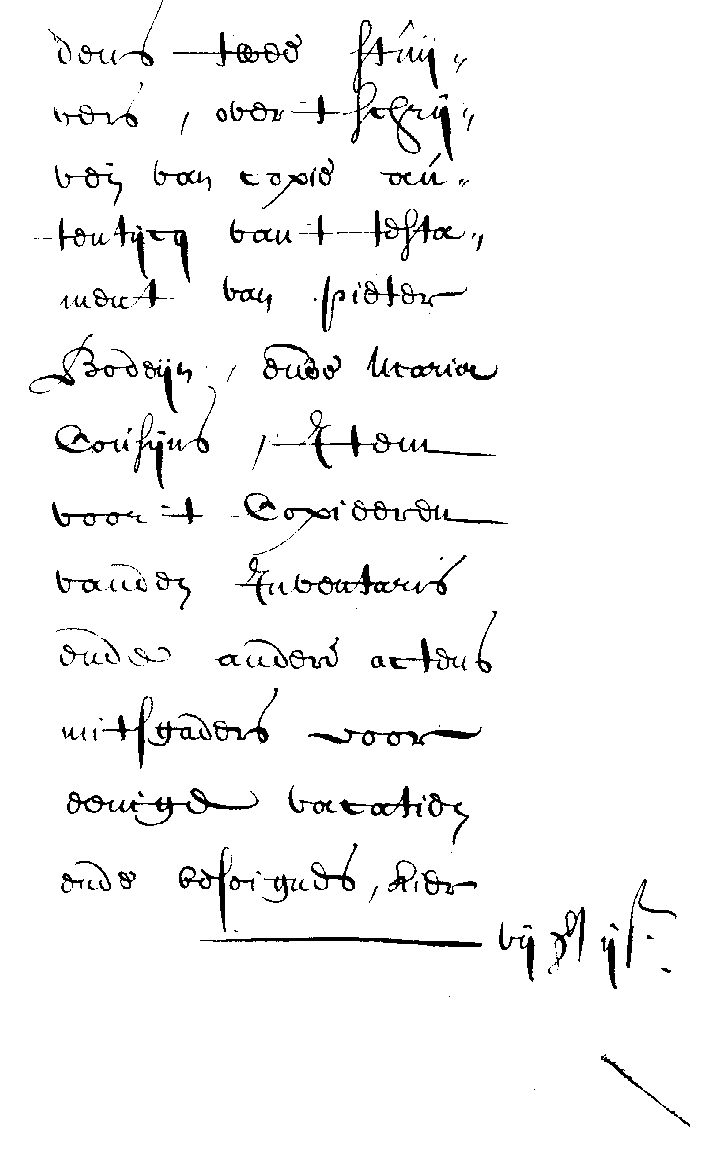 dens twee stuij„
vers, over t schrij„
ven van copie au„
tentijcq van t testa„
ment van pieter
Bodeijn, ende Maria
Cousijns, Item
voor t Copieeren
vanden Inventaris
ende andere actens
mitsgaders voor
eenige vacatien
ende besoignes, hier
vij ijs